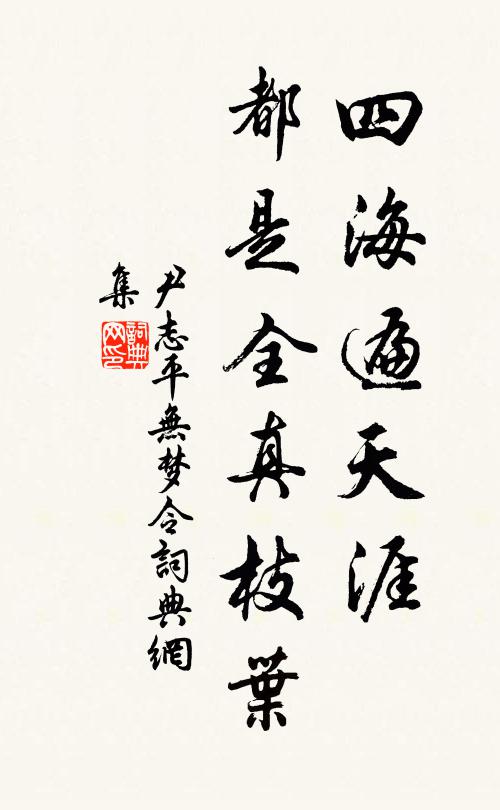 四海遍天涯
都是全真枝葉
尹志平無梦令詞典網
集
詞典网印